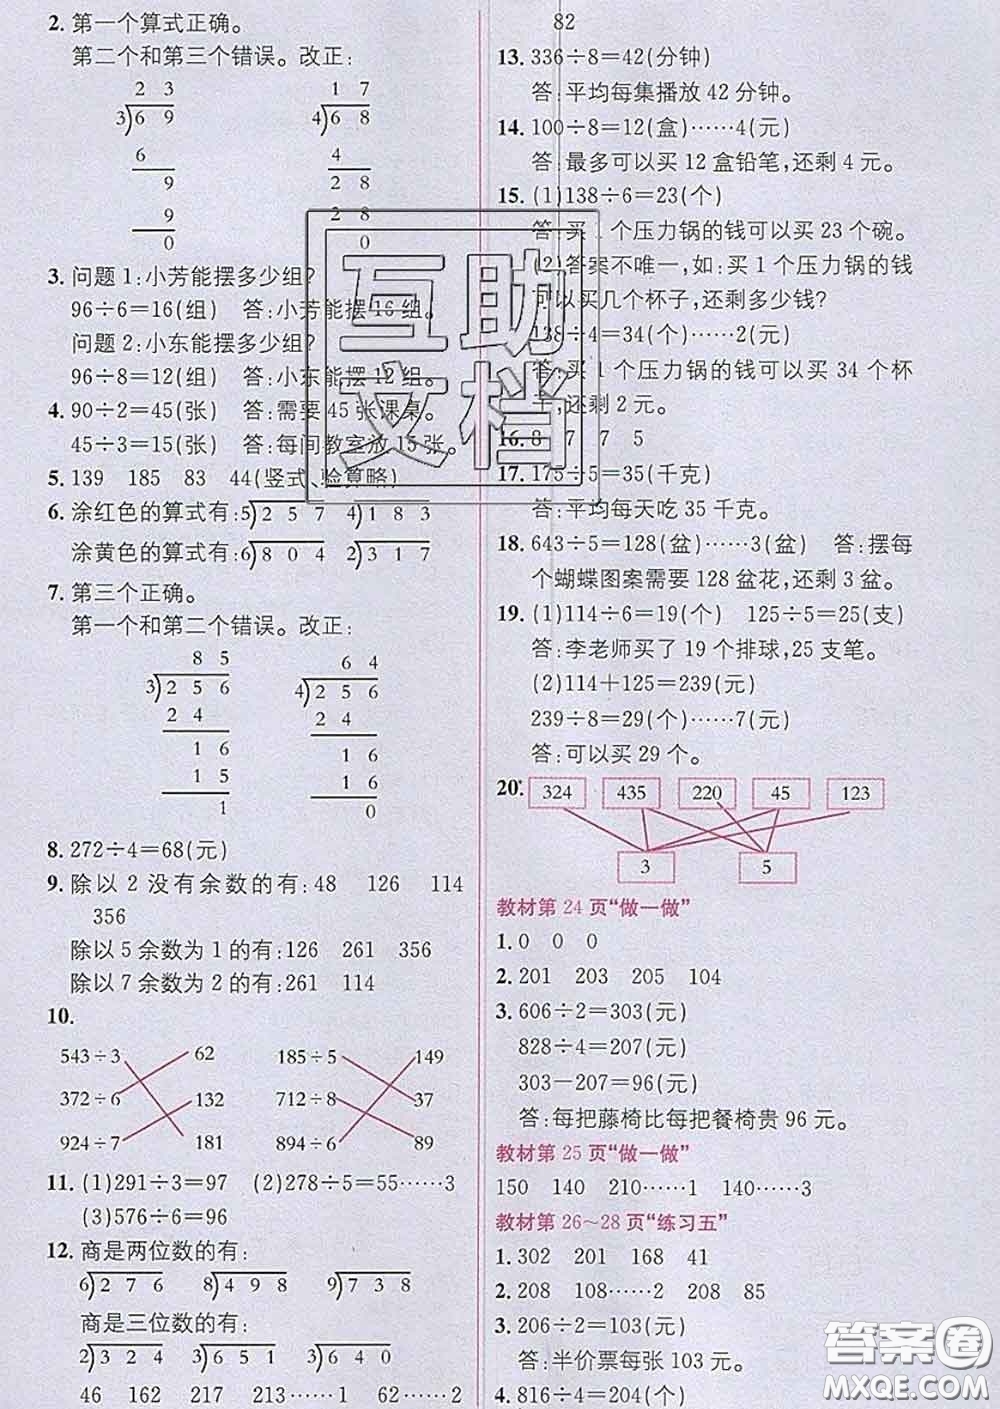 2. 第一个算式正确。
第二个和第三个错误。改正:
2 3
3)6 9
6
9
9
0
1 7
4)6 8
4
2 8
2 8
0
3. 问题 1:小芳能摆多少组?
96÷6=16(组) 答:小芳能摆 16 组。
问题 2:小东能摆多少组?
96÷8=12(组) 答:小东能摆 12 组。
4. 90÷2=45(张) 答:需要 45 张课桌。
45÷3=15(张) 答:每间教室放 15 张。
5. 139 185 83 44(竖式、验算略)
6. 涂红色的算式有:5)2 5 7 4)1 8 3
涂黄色的算式有:6)8 0 4 2)3 1 7
7. 第三个正确。
第一个和第二个错误。改正:
8 5
3)2 5 6
2 4
1 6
1 5
1
6 4
4)2 5 6
2 4
1 6
1 6
0
8. 272÷4=68(元)
9. 除以 2 没有余数的有:48 126 114
356
除以 5 余数为 1 的有:126 261 356
除以 7 余数为 2 的有:261 114
10.
543÷3 62 185÷5 149
372÷6 132 712÷8 37
924÷7 181 894÷6 89
11. (1)291÷3=97 (2)278÷5=55……3
(3)576÷6=96
12. 商是两位数的有:
6)2 7 6 8)4 9 8 9)7 3 8
商是三位数的有:
2)3 2 4 3)6 5 1 3)6 4 0
46 162 217 213……1 62……2
82
13. 336÷8=42(分钟)
答:平均每集播放 42 分钟。
14. 100÷8=12(盒)……4(元)
答:最多可以买 12 盒铅笔,还剩 4 元。
15. (1)138÷6=23(个)
答:买 1 个压力锅的钱可以买 23 个碗。
(2)答案不唯一,如:买 1 个压力锅的钱
可以买几个杯子,还剩多少钱?
138÷4=34(个)……2(元)
答:买 1 个压力锅的钱可以买 34 个杯
子,还剩 2 元。
16. 8 7 7 5
17. 175÷5=35(千克)
答:平均每天吃 35 千克。
18. 643÷5=128(盆)……3(盆) 答:摆每
个蝴蝶图案需要 128 盆花,还剩 3 盆。
19. (1)114÷6=19(个) 125÷5=25(支)
答:李老师买了 19 个排球,25 支笔。
(2)114+125=239(元)
239÷8=29(个)……7(元)
答:可以买 29 个。
20. 324 435 220 45 123
3 5
教材第 24 页“做一做”
1. 0 0 0
2. 201 203 205 104
3. 606÷2=303(元)
828÷4=207(元)
303-207=96(元)
答:每把藤椅比每把餐椅贵 96 元。
教材第 25 页“做一做”
150 140 210……1 140……3
教材第 26~28 页“练习五”
1. 302 201 168 41
2. 208 108……2 208 85
3. 206÷2=103(元)
答:半价票每张 103 元。
4. 816÷4=204(个)
互助
文档
答案圈
MXQE.COM